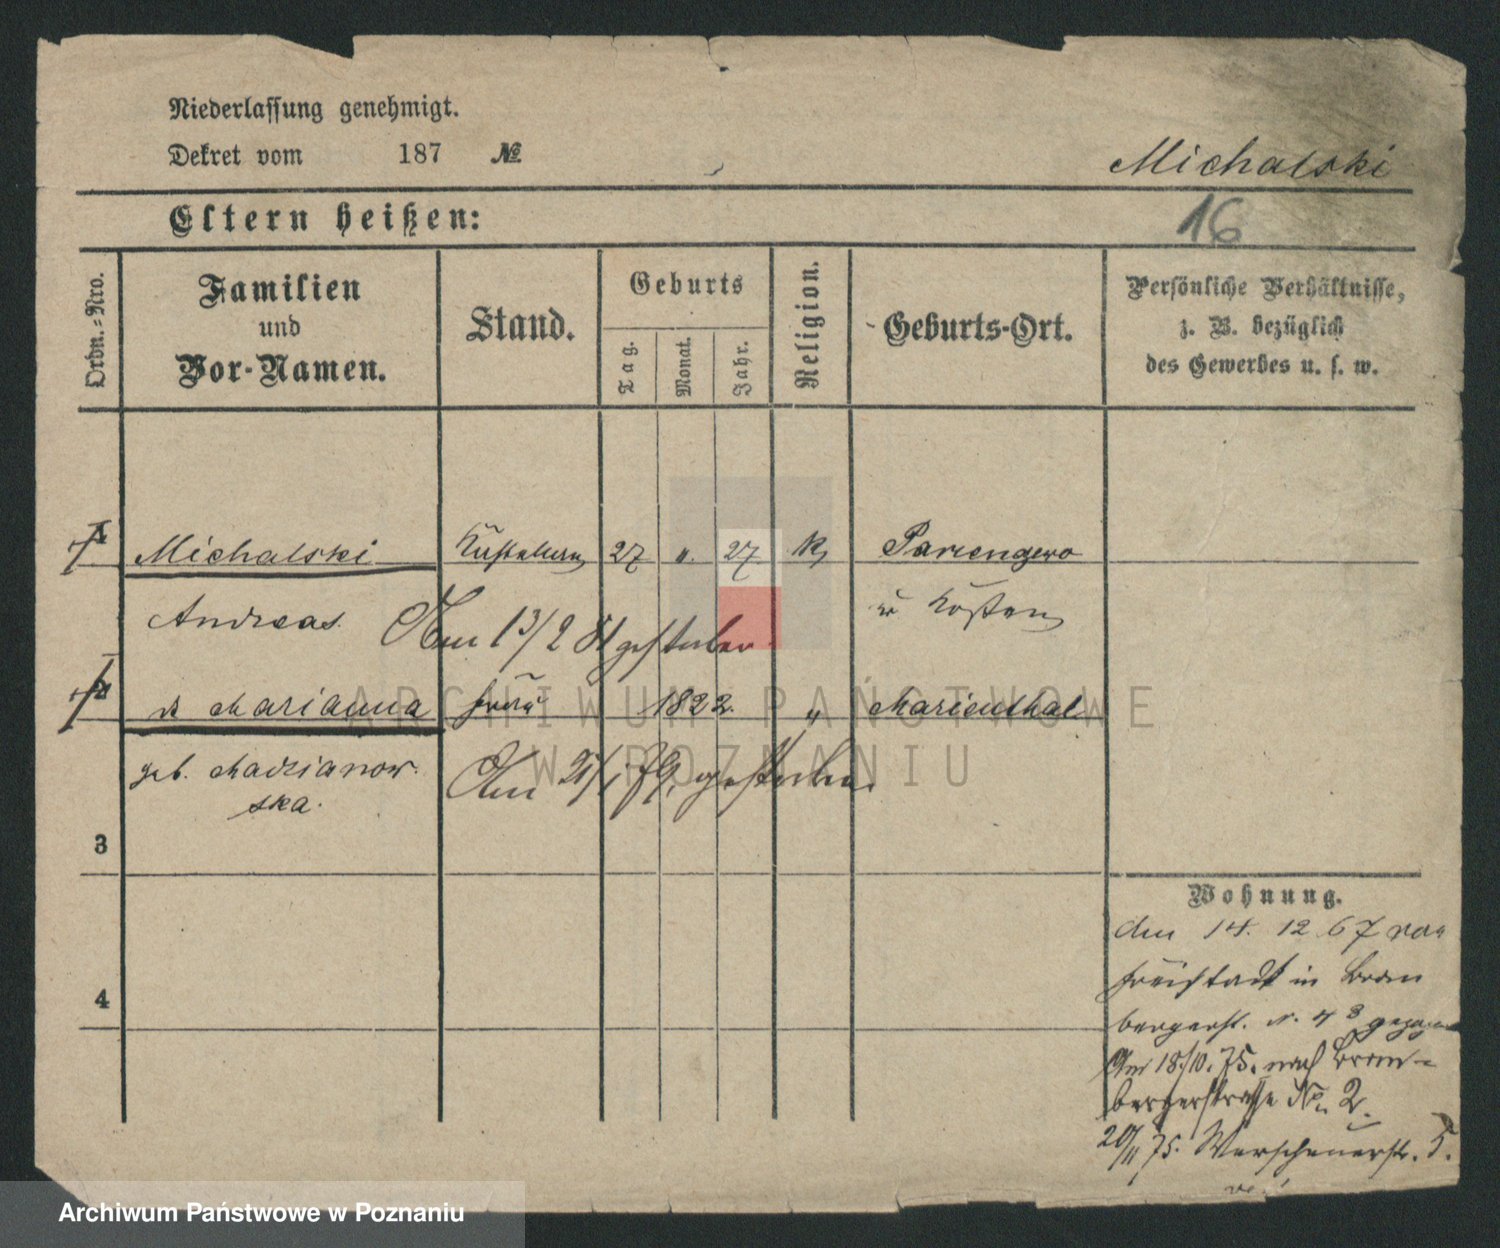 Niederlassung genehmigt.
Dekret vom 187 №
Michalski
Eltern heißen:
16
Ordn.-Nro.
Familien
und
Vor-Namen.
Stand.
Geburts
Tag.
Monat.
Jahr.
Religion.
Geburts-Ort.
Persönliche Verhältnisse,
z. B. bezüglich
des Gewerbes u. s. w.
1 Michalski 27 „ 27 K
Andreas. Am 13/2 81 gestorben
Kosten
2 Marianna Frau 1822. „ Marienthal
geb. Madzianow-
ska. Am 21/1 79. gestorben.
3
4
Wohnung.
den 14. 12 67 von
Freistadt in Brom
bergerst. N. 48 gezogen
Am 18/10. 75. nach Brom-
bergerstrasse No. 2.
20/11 75. Warschauerstr. 5.
ARCHIWUM PAŃSTWOWE
W POZNANIU
Archiwum Państwowe w Poznaniu